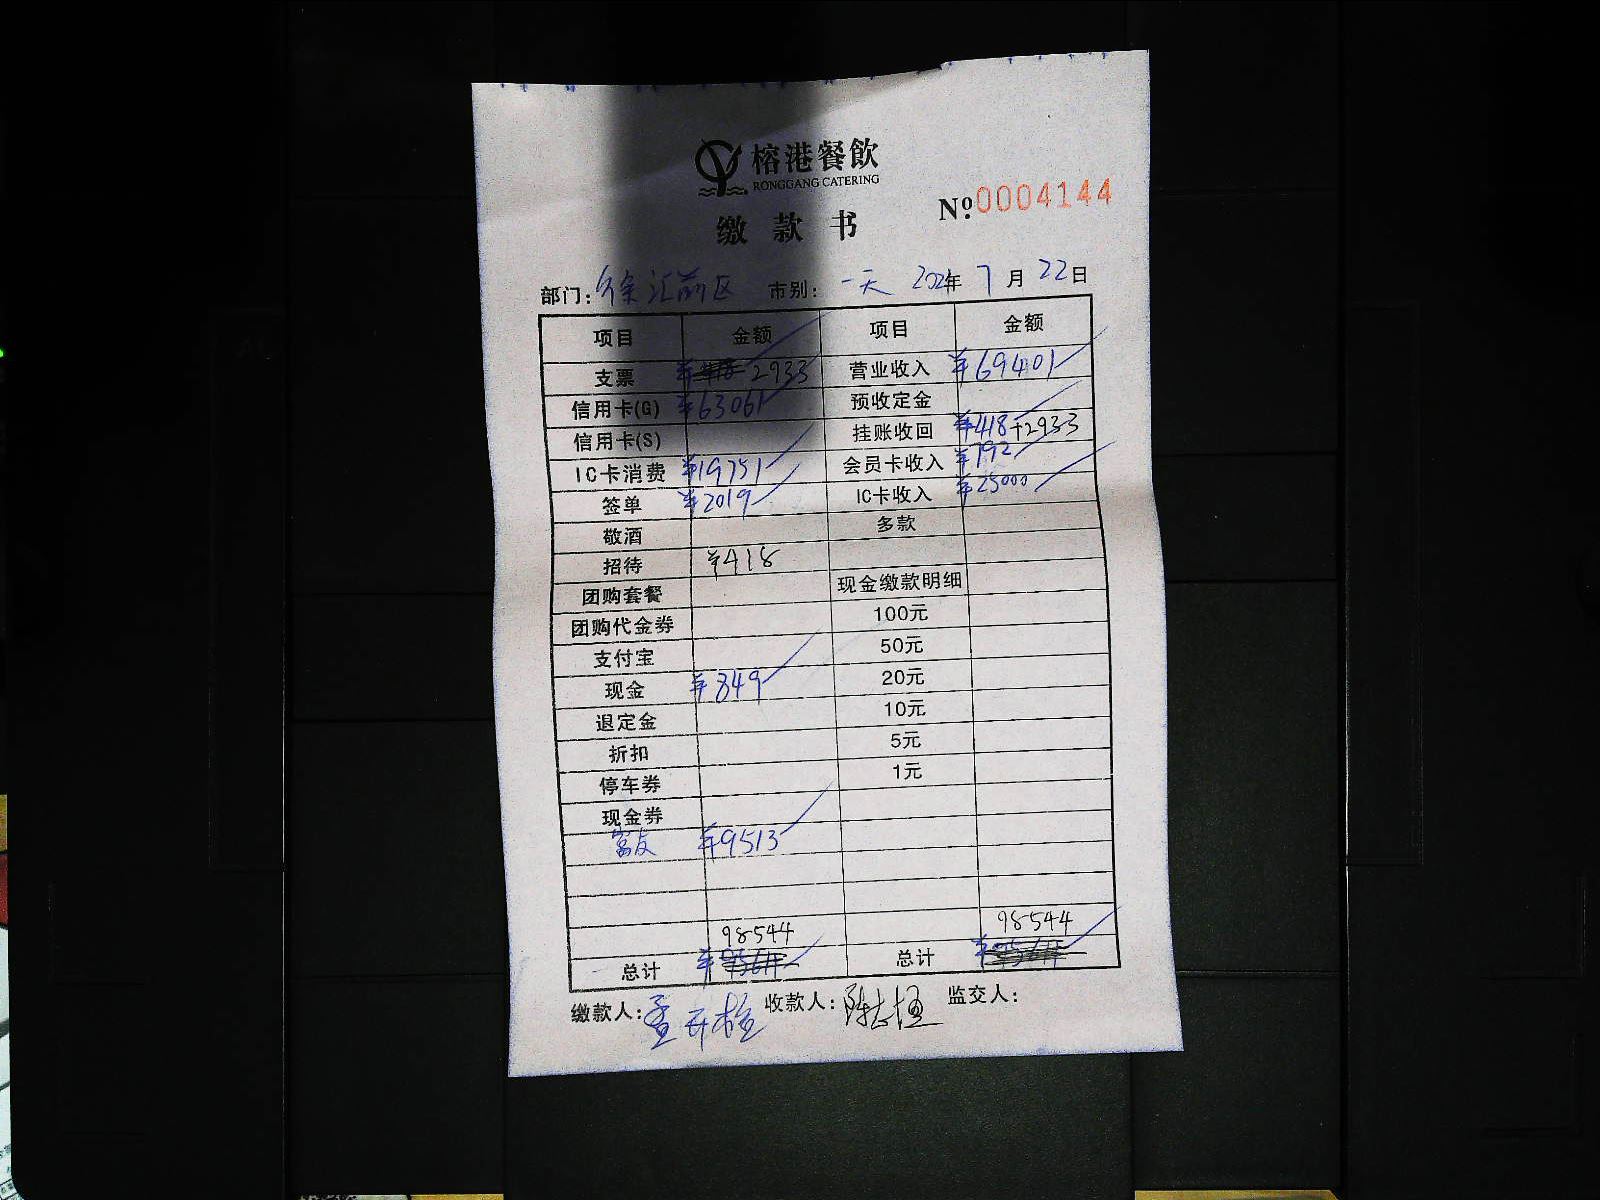 榕港餐飲
RONGGANG CATERING
缴款书 №0004144
部门: 徐汇前区 市别: 一天 202年 7月 22日
项目 金额 项目 金额
支票 ¥ 2933 营业收入 ¥69401
信用卡(G) ¥63061 预收定金
信用卡(S) 挂账收回 ¥418+2933
IC卡消费 ¥19751 会员卡收入 ¥792
签单 ¥2019 IC卡收入 ¥25000
敬酒 多款
招待 ¥418
团购套餐 现金缴款明细
团购代金券 100元
支付宝 50元
现金 ¥849 20元
退定金 10元
折扣 5元
停车券 1元
现金券
富友 ¥9513
98544 98544
总计 ¥ 总计 ¥
缴款人: 收款人: 监交人: